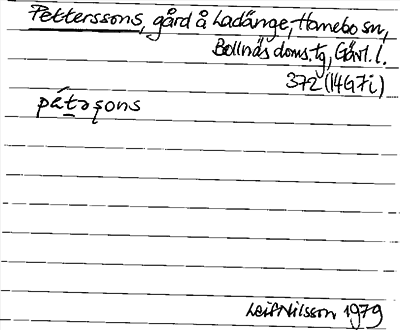 Petterssons, gård å Ladänge, Hanebo sn,
Bollnäs doms. tg, Gävl. l.
372 (14G7i)
pátəșons
Leif Nilsson 1979